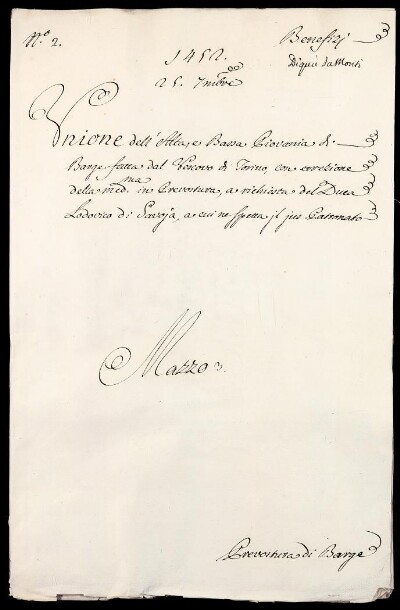 N.º 2.
Benefizj
Di qui da Monti
1452.
25. 7mbre
Unione dell'Alta, e Bassa Giovania di
Barge fatta dal Vescovo di Torino, con erezione
della med.ma in Prevostura, a richiesta del Duca
Lodovico di Savoja, a cui ne spetta jl jus Patronato
Mazzo 3.
Prevostura di Barge